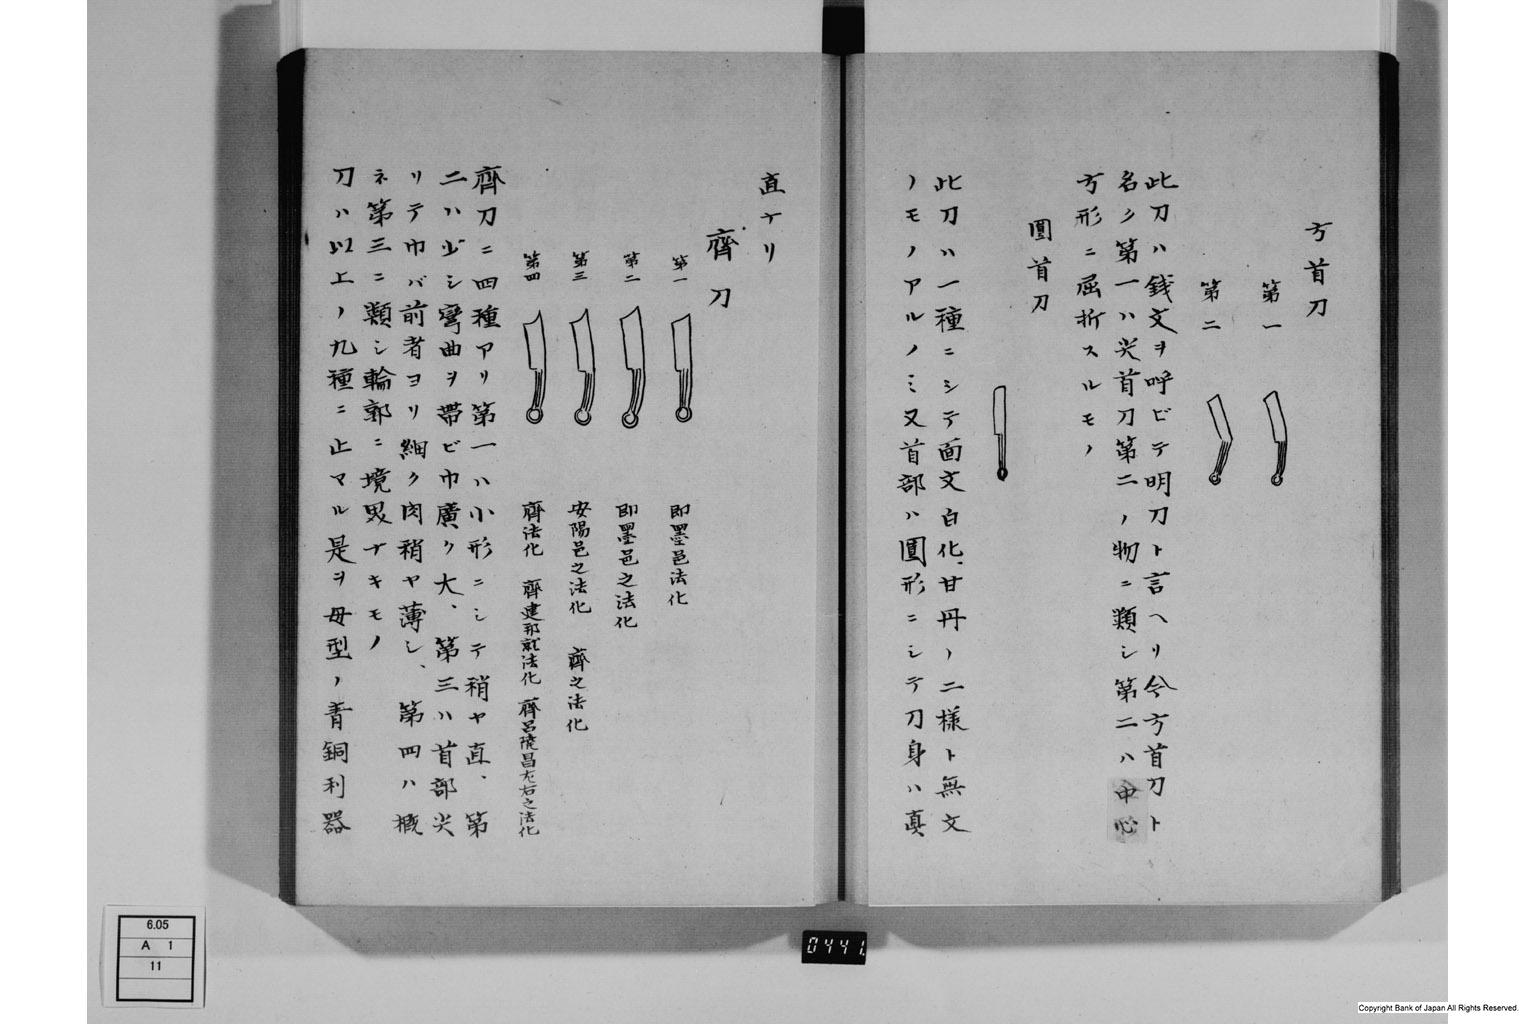 方首刀
第一
第二
此刀ハ銭文ヲ呼ビテ明刀ト言ヘリ今方首刀ト
名ク第一ハ尖首刀第二ノ物ニ類シ第二ハ中心
方形ニ屈折スルモノ
圓首刀
此刀ハ一種ニシテ面文白化、甘丹ノ二様ト無文
ノモノアルノミ又首部ハ圓形ニシテ刀身ハ真
直ナリ
齊刀
第一 即墨邑法化
第二 即墨邑之法化
第三 安陽邑之法化 齊之法化
第四 齊法化 齊建邦就法化 齊呂陵昌左右之法化
齊刀ニ四種アリ第一ハ小形ニシテ稍ヤ直、第
二ハ少シ彎曲ヲ帯ビ巾廣ク大、第三ハ首部尖
リテ巾バ前者ヨリ細ク肉稍ヤ薄シ、第四ハ概
ネ第三ニ類シ輪郭ニ境界ナキモノ
刀ハ以上ノ九種ニ止マル是ヲ母型ノ青銅利器
6.05
A 1
11
0441
Copyright Bank of Japan All Rights Reserved.